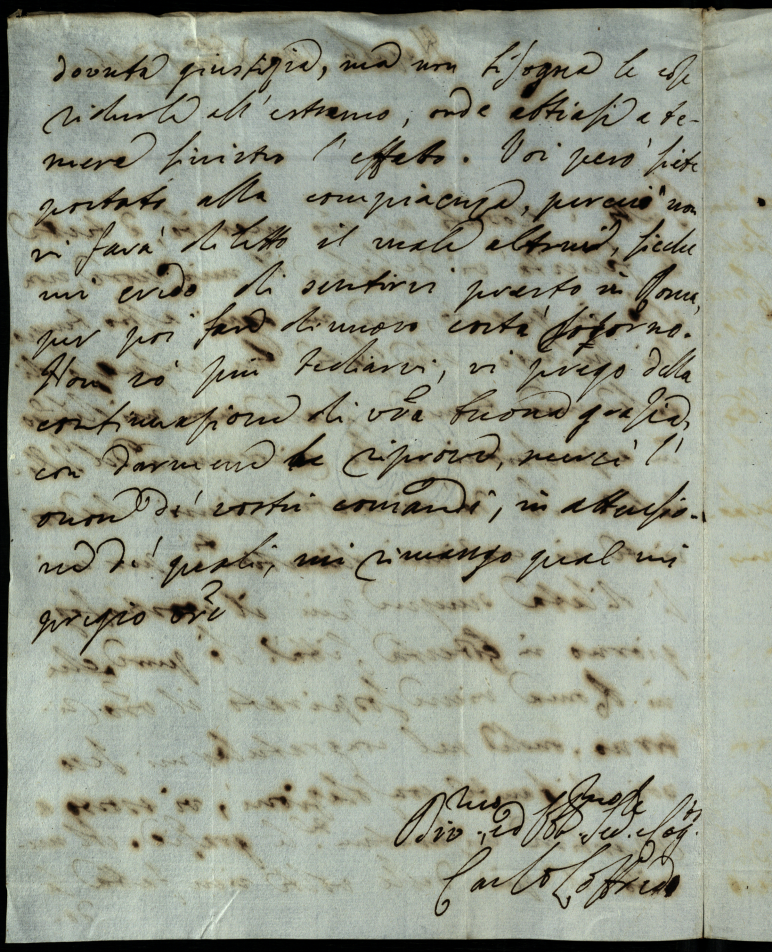 dovuta giustizia, ma non bisogna le cose
ridurle all'estremo, onde abbiasi a te-
mere sinistro l'effetto. Voi però siete
portato alla compiacenza, perciò non
vi farà diletto il male altrui, sicche
mi credo di sentirvi presto in Roma,
per poi far di nuovo costà soggiorno.
Non vo' più tediarvi, vi prego della
continuazione di vra buona grazia,
con darmene le riprove, mercè l'
onore de' vostri comandi, in attenzio-
ne de' quali, mi rimango qual mi
pregio
Div.mo ed Obb.mo Se.
Carlo Loffredo